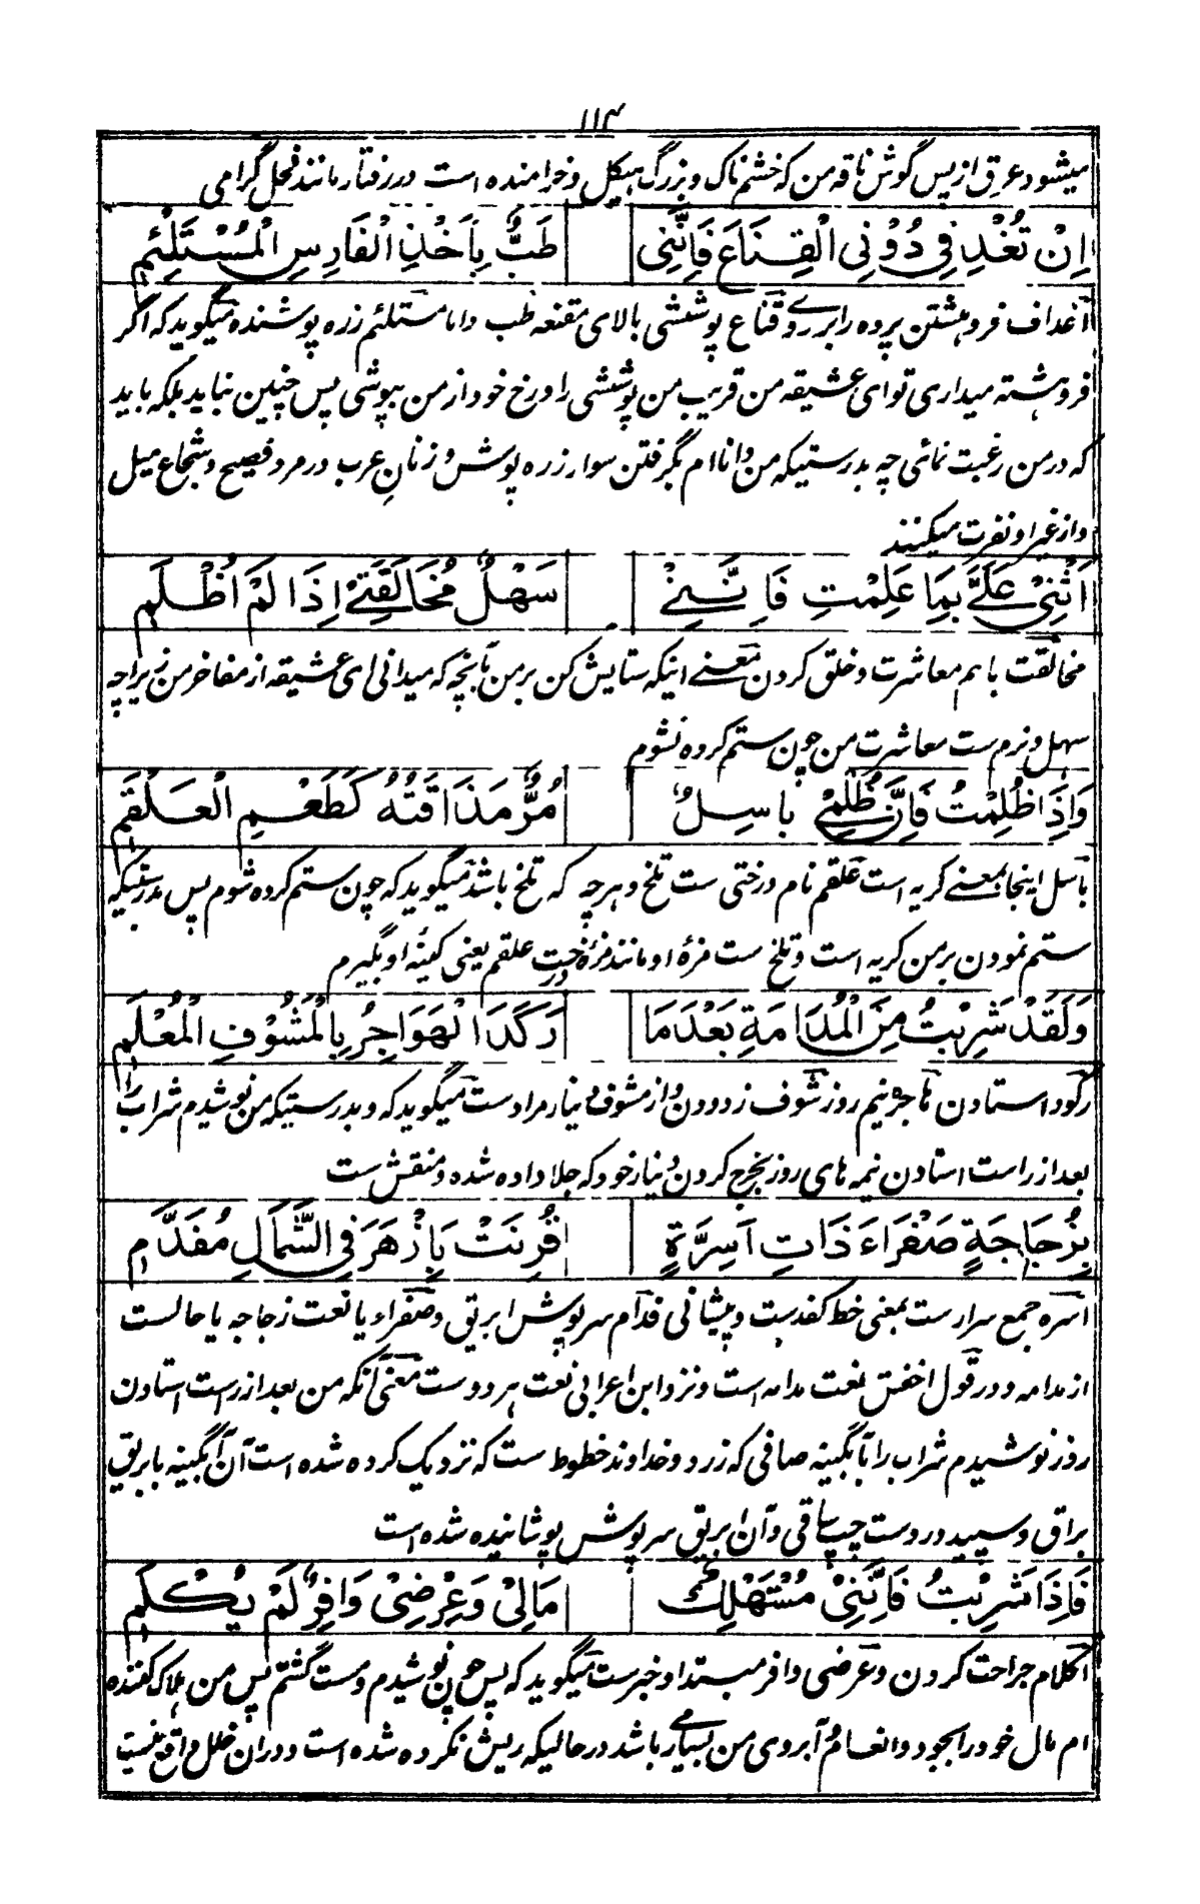 ۱۱۴
میشود عرق از پس گوش ناقه من که خشمناک و بزرگ هیکل و خرامنده است در رفتار مانند فحل گرامی
اِنْ تُغْدِفِیْ دُوْنِی الْقِنَاعَ فَاِنَّنِی طَبٌّ بِاَخْذِ الْفَارِسِ الْمُسْتَلْئِمِ
اغداف فروہشتن پرده را بر روے و قناع پوششی بالای مقنعه طب دانا مستلئم زره پوشنده میگوید که اگر
فروہشته میداری تو ای عشیقه من قریب من پوششی را و رخ خود از من بپوشی پس چنین نباید بلکه باید
که در من رغبت نمائی چه بدرستیکه من دانا ام بگرفتن سوار زره پوش و زنان عرب در مرد فصیح و شجاع میل
و از غیر او نفرت میکنند
اَثْنِیْ عَلَیَّ بِمَا عَلِمْتِ فَاِنَّنِیْ سَهْلٌ مُخَالَقَتِیْ اِذَا لَمْ اُظْلَمِ
مخالقت باہم معاشرت و خلق کردن معنے اینکه ستایش کن بر من بآنچه که میدانی ای عشیقه از مفاخر من زیراچه
سہل و نرم ست معاشرت من چون ستم کرده نشوم
وَاِذَا ظُلِمْتُ فَاِنَّ ظُلْمِیْ بَاسِلٌ مُرٌّ مَذَاقَتُهُ كَطَعْمِ الْعَلْقَمِ
باسل اینجا بمعنے کریه است علقم نام درختی ست تلخ و ہرچه که تلخ باشد میگوید که چون ستم کرده شوم پس بدرستیکه
ستم نمودن بر من کریه است و تلخ ست مزۂ او مانند مزۂ درخت علقم یعنی کینۂ او بگیرم
وَلَقَدْ شَرِبْتُ مِنَ الْمُدَامَةِ بَعْدَمَا رَكَدَ الْهَوَاجِرُ بِالْمَشُوْفِ الْمُعْلَمِ
رکود استادن هاجره نیم روز شوف زدودن و از مشوف دینار مراد ست میگوید که و بدرستیکه من نوشیدم شراب را
بعد از راست استادن نیمه های روز بخرج کردن دینار خود که جلا داده شده و منقش ست
بِزُجَاجَةٍ صَفْرَاءَ ذَاتِ اَسِرَّةٍ قُرِنَتْ بِاَزْهَرَ فِی الشَّمَالِ مُفَدَّمِ
اسره جمع سرار ست بمعنی خط کف دست و پیشانی فدام سرپوش ابریق و صفراء یا نعت زجاجه یا حالست
از مدامه و در قول اخفش نعت مدامه است و نزد ابن اعرابی نعت ہر دوست معنی آنکه من بعد از راست استادن
روز نوشیدم شراب را بآبگینه صافی که زرد و خداوند خطوط ست که نزدیک کرده شده است آن آبگینه بابریق
براق و سپید در دست چپ ساقی و آن ابریق سرپوش پوشانیده شده است
فَاِذَا شَرِبْتُ فَاِنَّنِیْ مُسْتَهْلِكٌ مَالِیْ وَعِرْضِیْ وَافِرٌ لَمْ یُكْلَمِ
کلام جراحت کردن و عرضی وافر مبتدا و خبر ست میگوید که پس چون نوشیدم و مست گشتم پس من ہلاک کننده
ام مال خود را بجود و انعام و آبروی من بسیار باشد در حالیکه ریش نکرده شده است و دران خلل واقع نیست